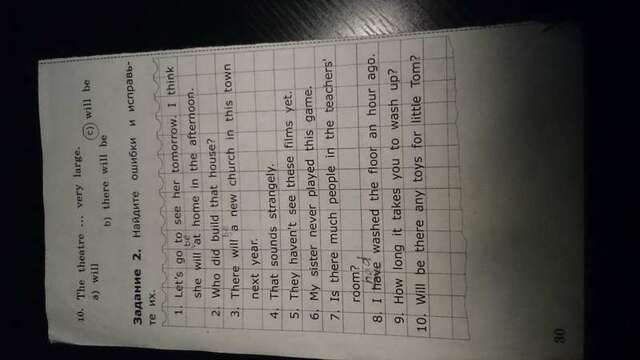 10. The theatre ... very large.
a) will
c) will be
b) there will be
Задание 2. Найдите ошибки и исправь-
те их.
1. Let's go to see her tomorrow. I think
be
she will at home in the afternoon.
2. Who did build that house?
be
3. There will a new church in this town
next year.
4. That sounds strangely.
5. They haven't see these films yet.
6. My sister never played this game.
7. Is there much people in the teachers'
room?
had
8. I have washed the floor an hour ago.
9. How long it takes you to wash up?
10. Will be there any toys for little Tom?
30